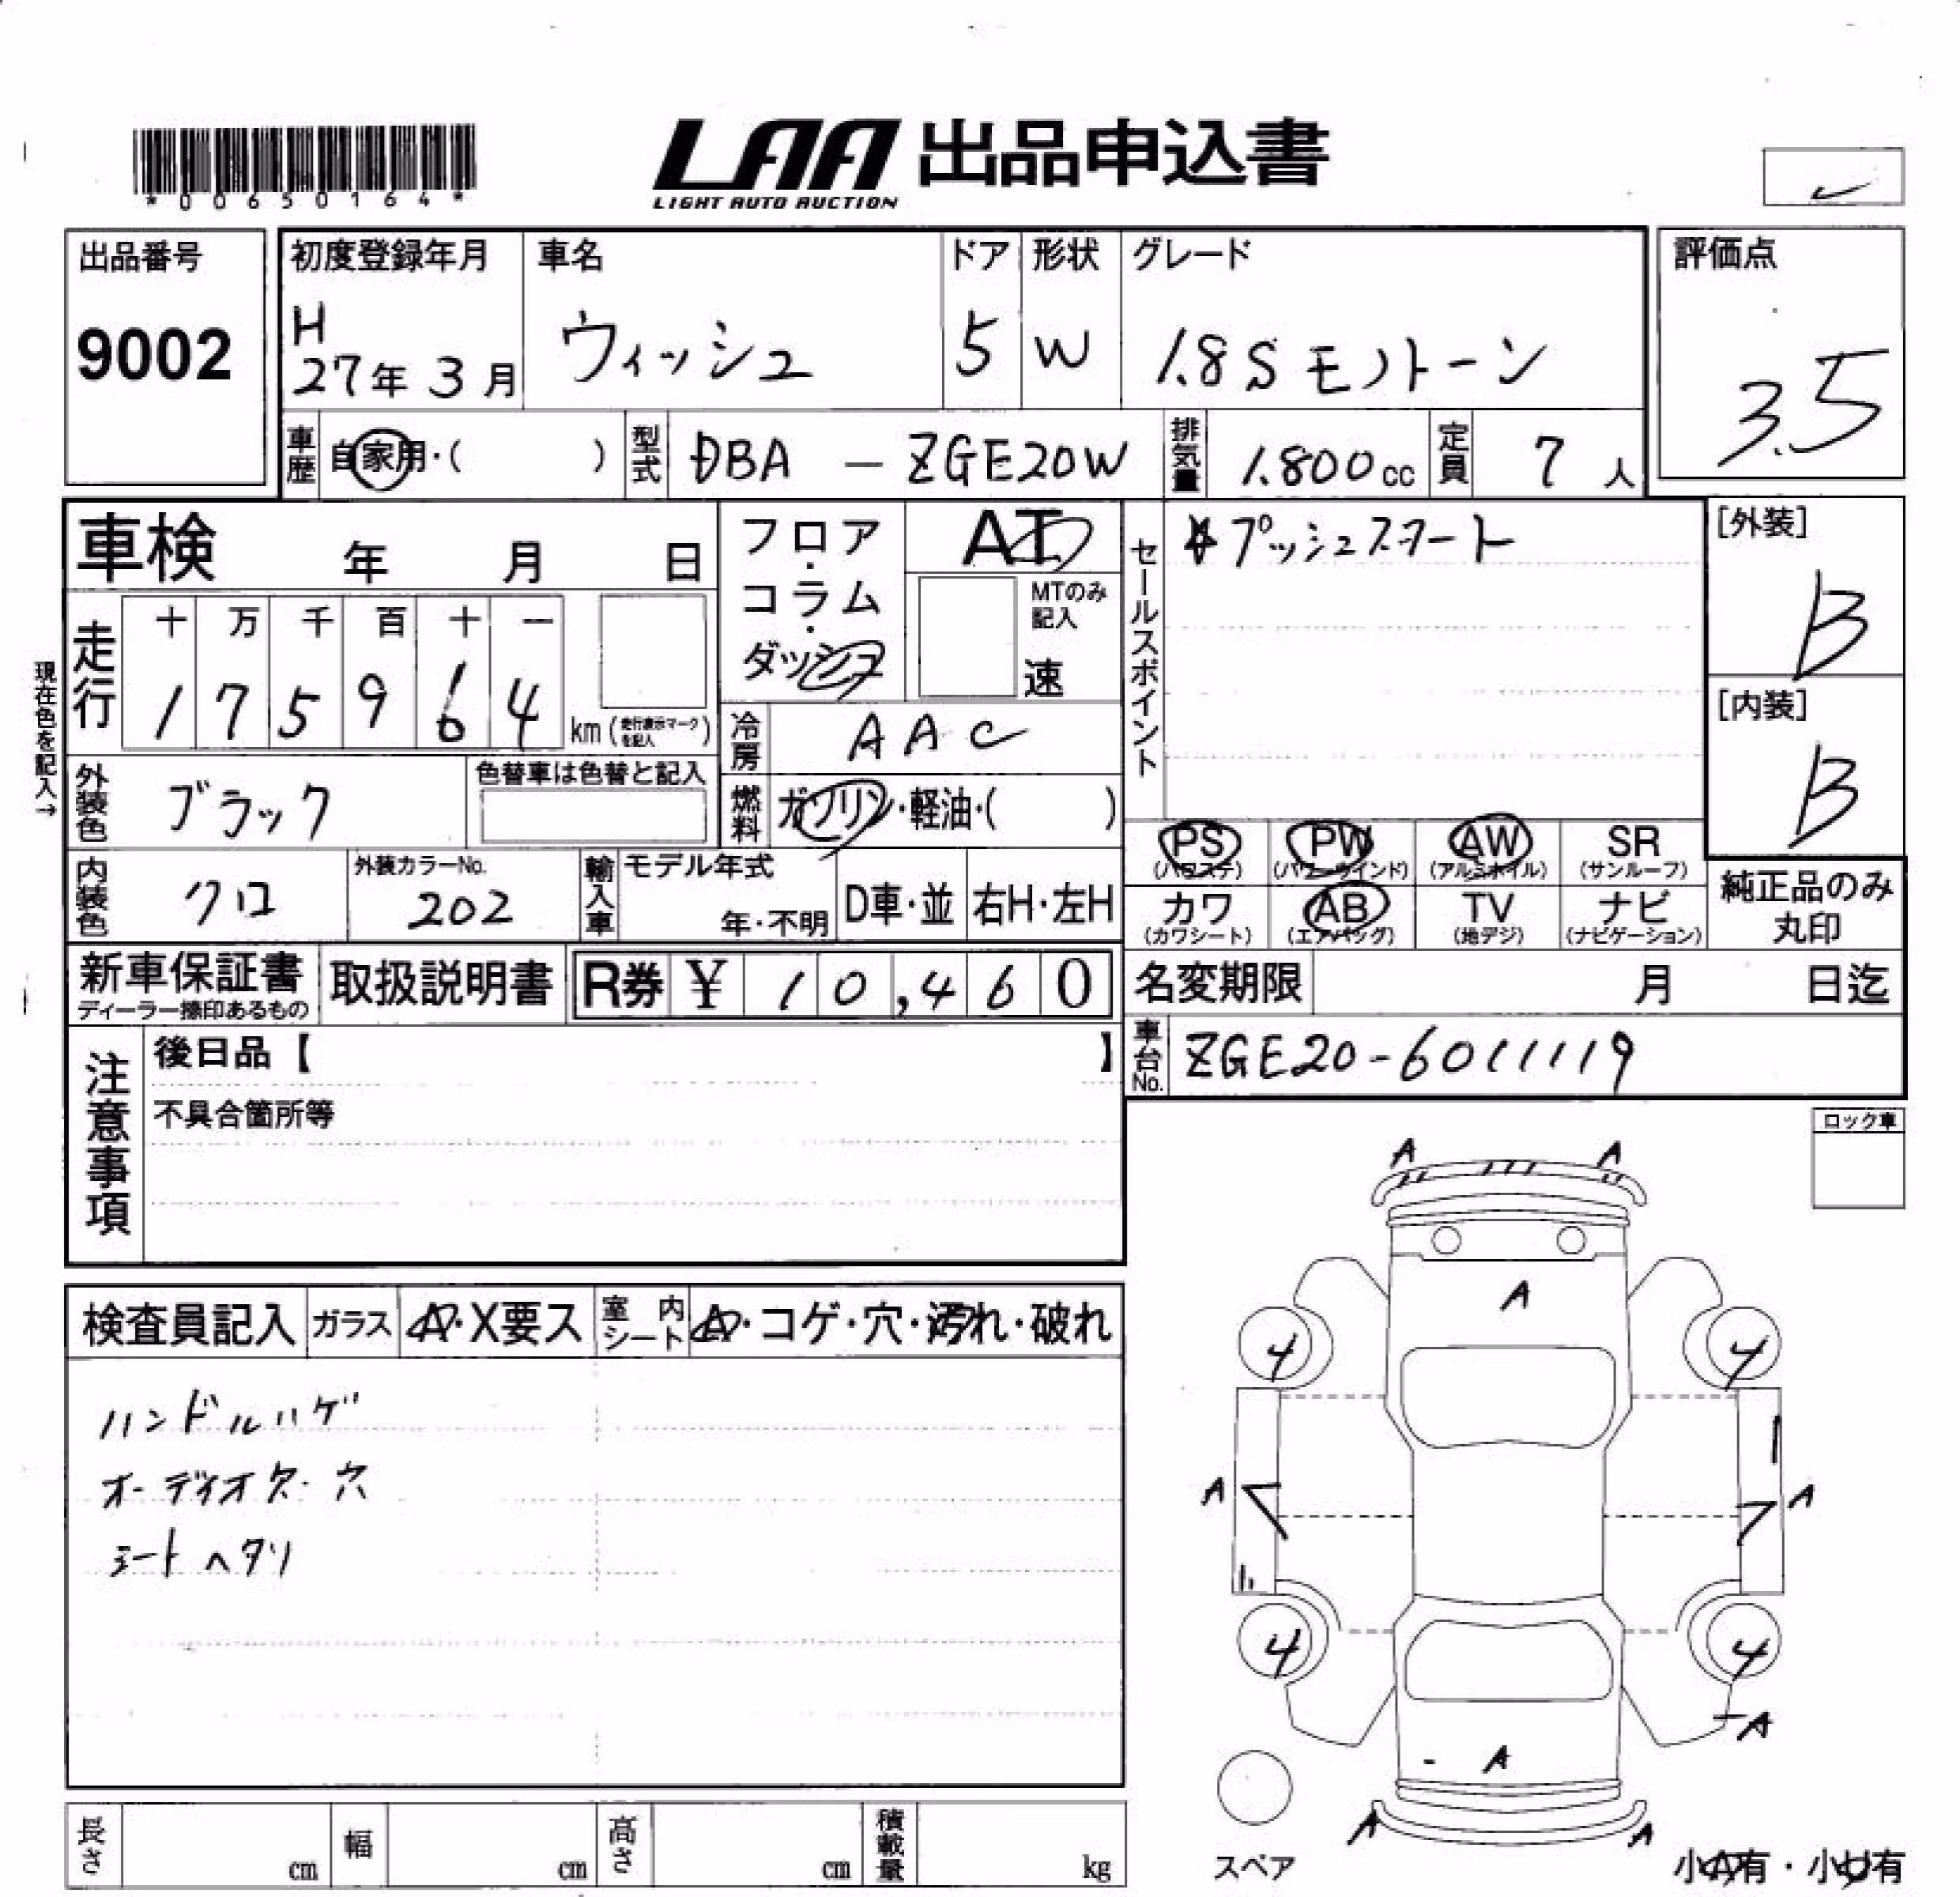 *00650164*
LAA 出品申込書
LIGHT AUTO AUCTION
出品番号
9002
初度登録年月
H
27年 3月
車名
ウィッシュ
ドア
5
形状
W
グレード
1.8S モノトーン
評価点
3.5
車歴
自家用・( )
型式
DBA - ZGE20W
排気量
1.800cc
定員
7人
車検 年 月 日
フロア・コラム・ダッシュ
AT
MTのみ記入
速
セールスポイント
☆プッシュスタート
[外装]
B
[内装]
B
現在色を記入→
走行
十 万 千 百 十 一
1 7 5 9 6 4
km (走行表示マークを記入)
冷房
AAC
外装色
ブラック
色替車は色替と記入
燃料
ガソリン・軽油・( )
PS (パワステ)
PW (パワーウインド)
AW (アルミホイル)
SR (サンルーフ)
カワ (カワシート)
AB (エアバッグ)
TV (地デジ)
ナビ (ナビゲーション)
純正品のみ丸印
内装色
クロ
外装カラーNo.
202
輸入車
モデル年式
年・不明
D車・並
右H・左H
新車保証書
ディーラー捺印あるもの
取扱説明書
R券 ¥ 10,460
名変期限 月 日迄
車台No.
ZGE20-6011119
注意事項
後日品【 】
不具合箇所等
ロック車
検査員記入
ガラス
A・X要ス
室内シート
A・コゲ・穴・汚れ・破れ
ハンドルハゲ
オーディオ欠・穴
シートヘタリ
A A
A
4 4
A A
4 4
A
A
A A
スペア
小A有・小U有
長さ cm
幅 cm
高さ cm
積載量 kg